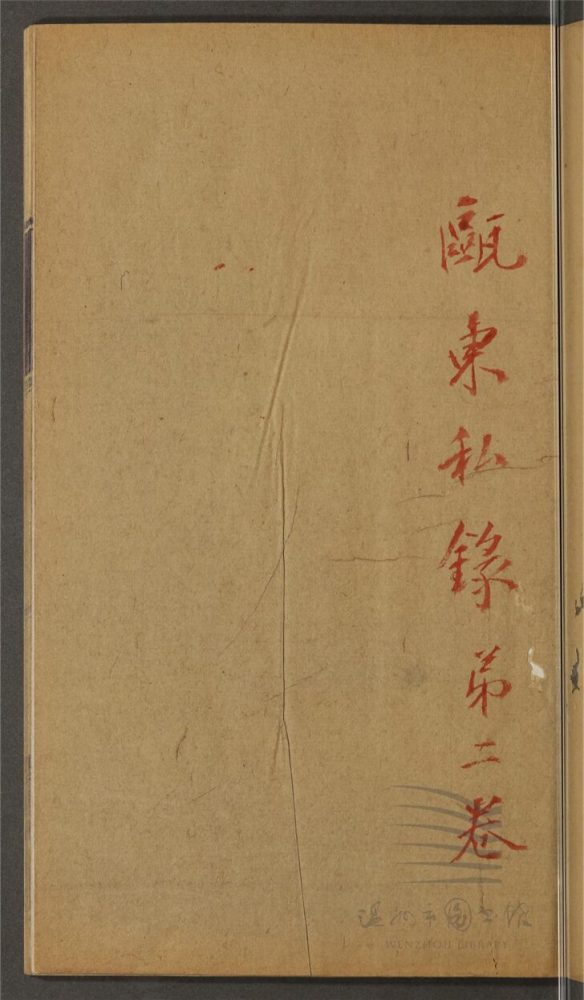 甌東私錄弟二卷
温州市图书馆
WENZHOU LIBRARY